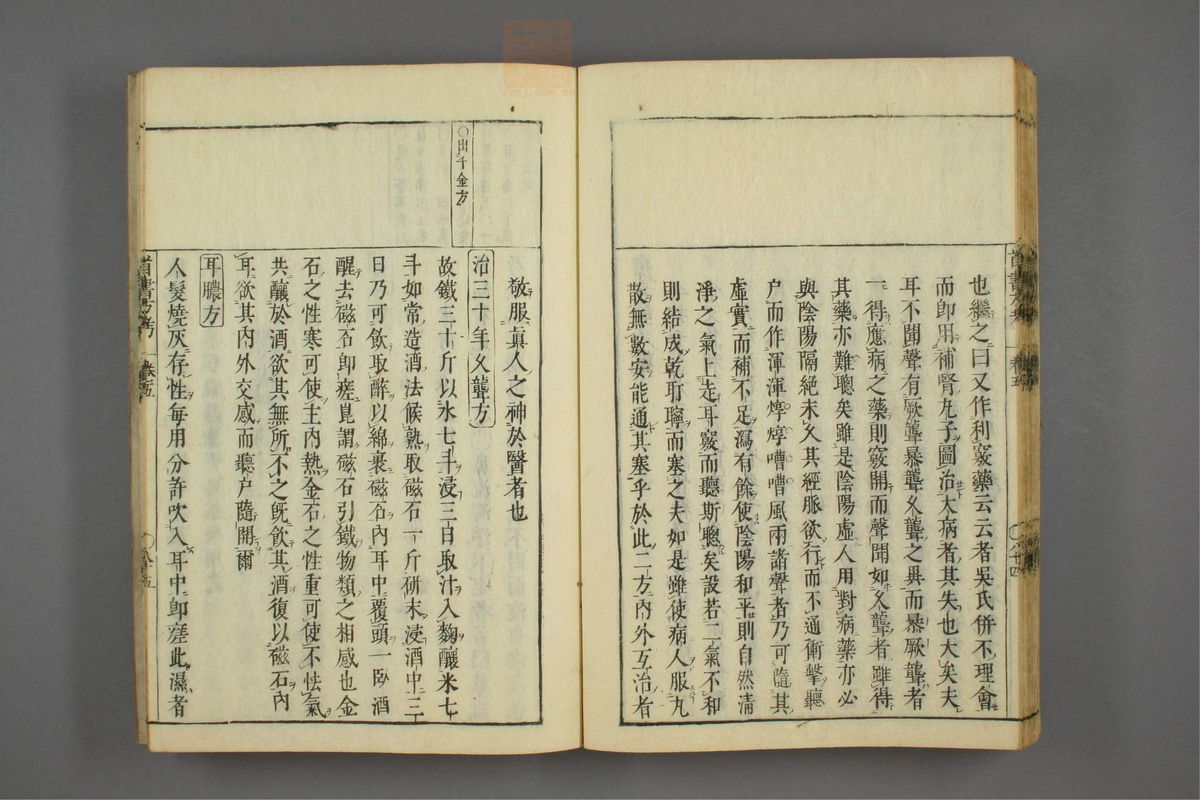 也繼之曰又作利竅藥云云者吳氏併不理會
而卽用補腎丸子圖治大病者其失也大矣夫
耳不聞聲有厥聾暴聾久聾之異而暴厥聾者
一得應病之藥則竅開而聲聞如久聾者雖得
其藥亦難聰矣雖是陰陽虛人用對病藥亦必
與陰陽隔絕未久其經脈欲行而不通衝擊聽
户而作渾渾焞焞嘈嘈風雨諸聲者乃可隨其
虛實而補不足瀉有餘使陰陽和平則自然淸
淨之氣上走耳竅而聽斯聰矣設若二氣不和
則結成乾耵聹而塞之夫如是雖使病人服丸
散無數安能通其塞乎於此二方內外互治者
首書方考
卷五
〇八十四
敬服眞人之神於醫者也
〇出千金方
治三十年久聾方
故鐵三十斤以水七斗浸三日取汁入麴釀米七
斗如常造酒法候熟取磁石一斤研末浸酒中三
日乃可飲取醉以綿裹磁石內耳中覆頭一卧酒
醒去磁石卽瘥崑謂磁石引鐵物類之相感也金
石之性寒可使主內熱金石之性重可使不怯氣
共釀於酒欲其無所不之旣飲其酒復以磁石內
耳欲其內外交感而聽户隨開爾
耳膿方
人髮燒灰存性每用分許吹入耳中卽瘥此濕者
首書方考
卷五
〇八十五